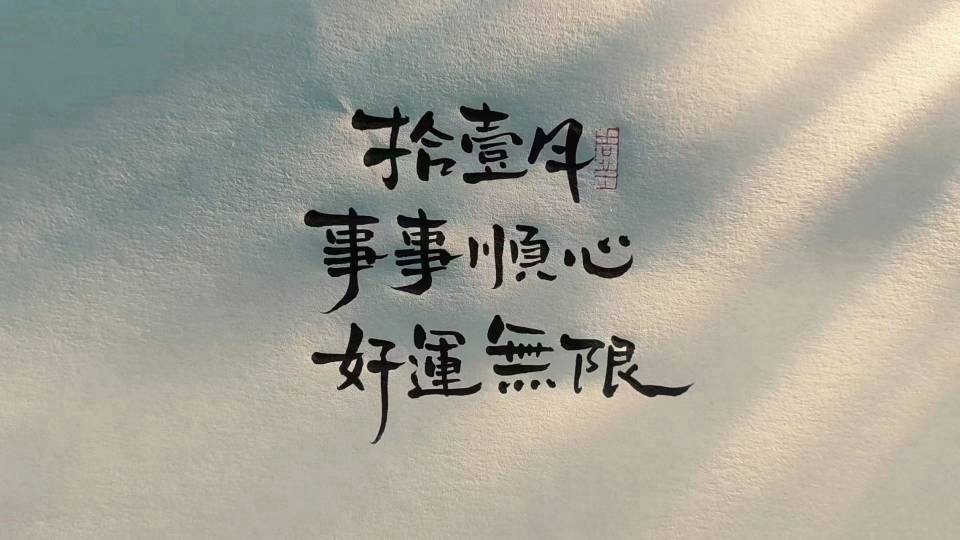 拾壹月
事事順心
好運無限